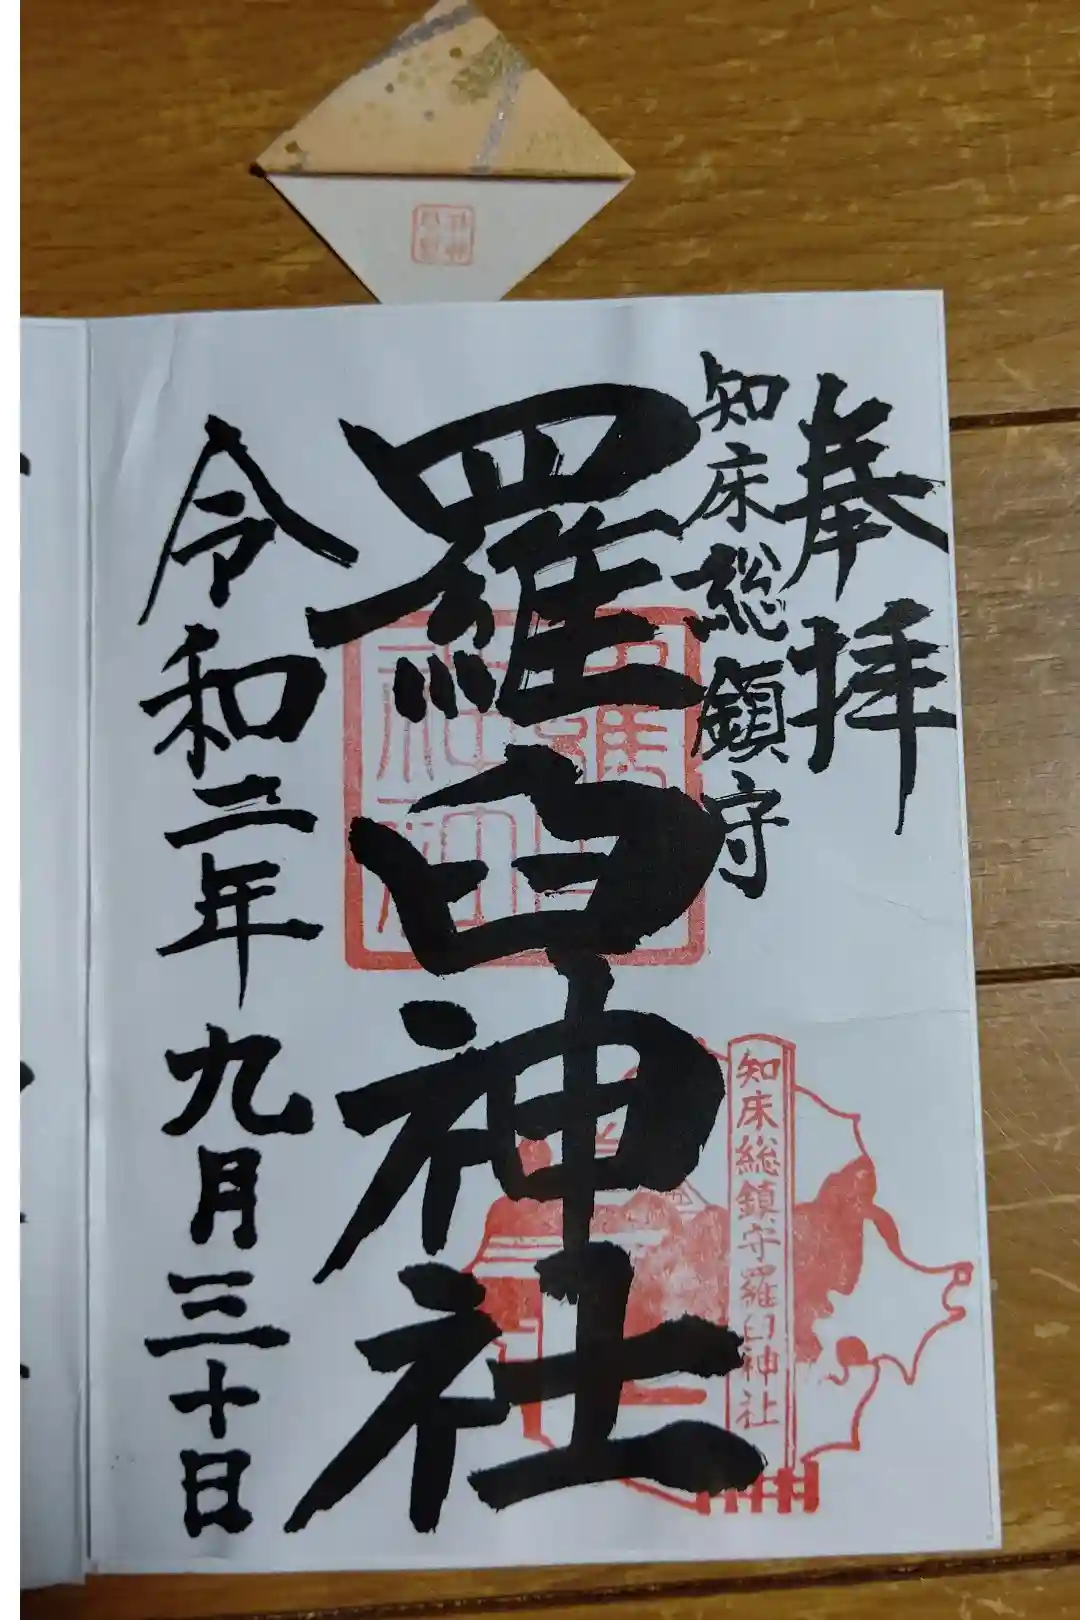 奉拝
知床総鎮守
羅臼神社
令和二年九月三十日
知床総鎮守羅臼神社